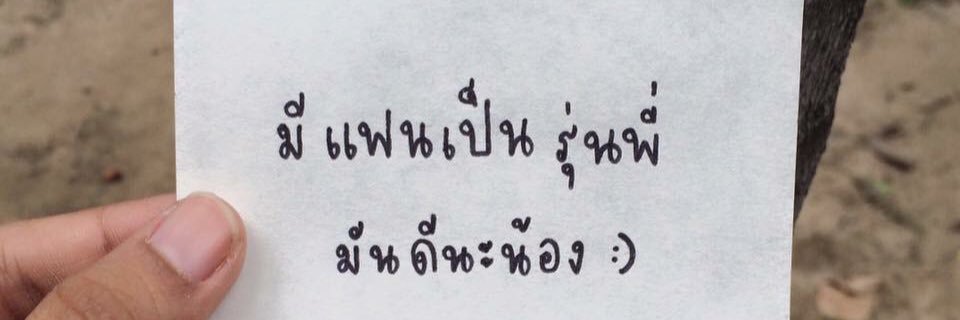 มี แฟนเป็น รุ่นพี่
มันดีนะน้อง :)